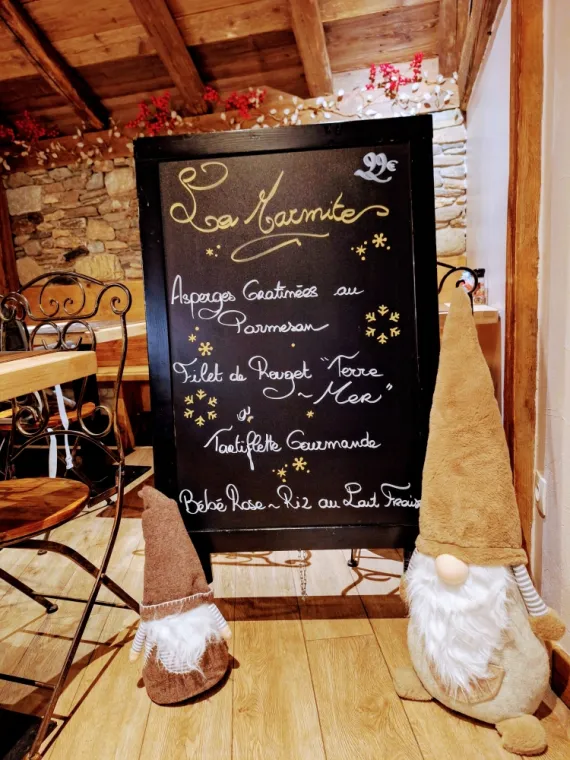 29€
La Marmite
Asperges Gratinées au
Parmesan
Filet de Rouget "Terre
~ Mer"
ou
Tartiflette Gourmande
Bébé Rose ~ Riz au Lait Fraise